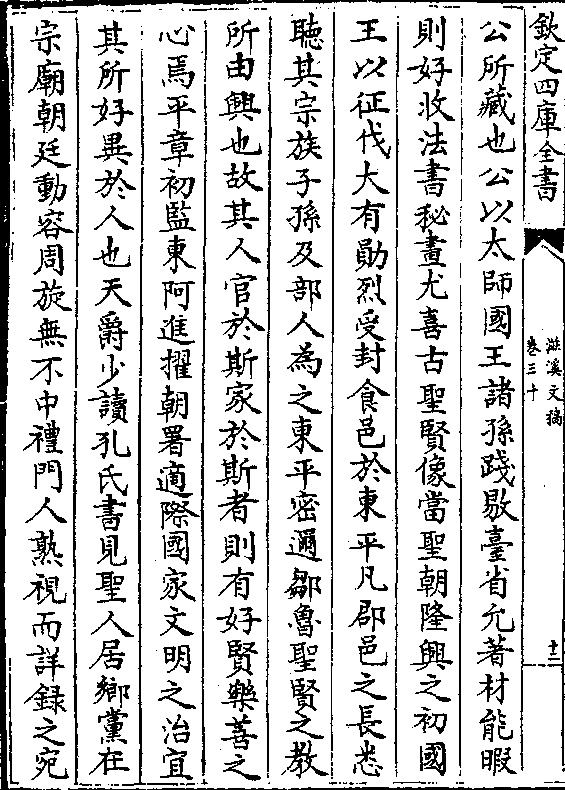 欽定四庫全書
滋溪文稿
卷三十
十二
公所藏也公以太師國王諸孫踐敭臺省允著材能暇
則好收法書秘畫尤喜古聖賢像當聖朝隆興之初國
王以征伐大有勛烈受封食邑於東平凡郡邑之長悉
聽其宗族子孫及部人為之東平密邇鄒魯聖賢之教
所由興也故其人官於斯家於斯者則有好賢樂善之
心焉平章初監東阿進擢朝署適際國家文明之治宜
其所好異於人也天爵少讀孔氏書見聖人居鄉黨在
宗廟朝廷動容周旋無不中禮門人熟視而詳録之宛